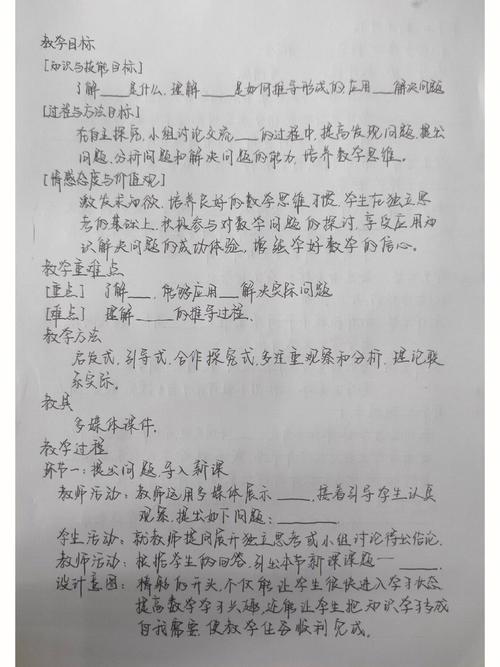 教学目标
[知识与技能目标]
了解____是什么,理解____是如何推导形成的,应用___解决问题
[过程与方法目标]
在自主探究,小组讨论交流___的过程中,提高发现问题,提出
问题,分析问题和解决问题的能力,培养数学思维。
[情感态度与价值观]
激发求知欲,培养良好的数学思维习惯,学生在独立思
考的基础上,积极参与对数学问题的探讨,享受应用知
识解决问题的成功体验,增强学好数学的信心。
教学重难点
[重点] 了解___,能够应用___解决实际问题
[难点] 理解_____的推导过程.
教学方法
启发式,引导式,合作探究式,多注重观察和分析,理论联
系实际。
教具
多媒体课件。
教学过程
环节一:提出问题,导入新课
教师活动:教师运用多媒体展示____,接着引导学生认真
观察,提出如下问题:_______.
学生活动:就教师提问展开独立思考或小组讨论得出结论.
教师活动:根据学生的回答,引出本节新课课题—_____.
设计意图:精彩的开头,不仅能让学生很快进入学习状态
提高数学学习兴趣,还能让学生把知识学习转成
自我需要,使教学任务顺利完成。